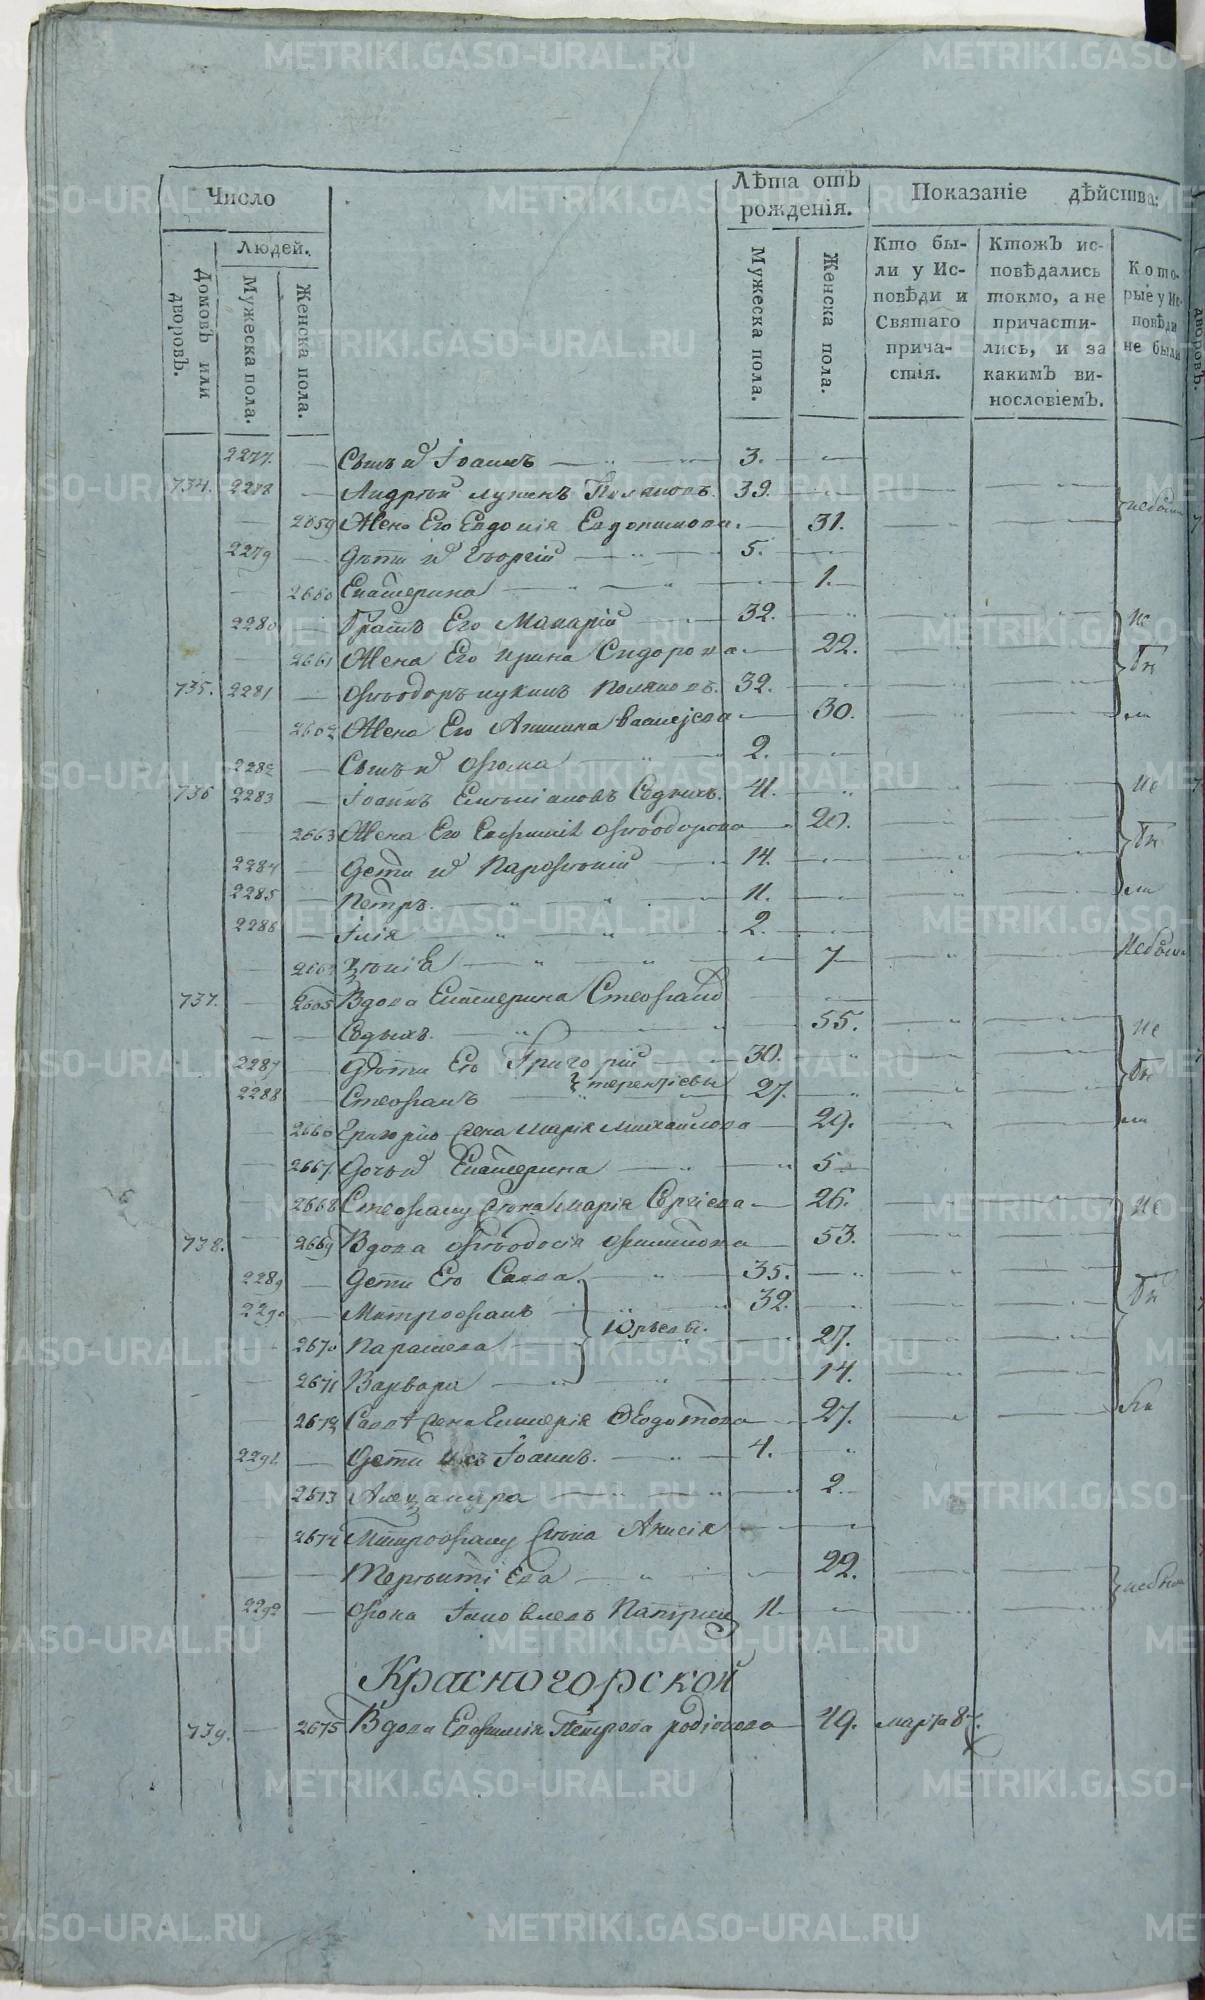 Число
Лѣта отъ рожденія.
Показаніе дѣйства:
Людей.
Домовъ или дворовъ.
Мужеска пола.
Женска пола.
Мужеска пола.
Женска пола.
Кто бы-
ли у Ис-
повѣди и
Святаго
прича-
стія.
Ктожъ ис-
повѣдались
токмо, а не
причасти-
лись, и за
какимъ ви-
нословіемъ.
Кото-
рые у Ис-
повѣди
не были
2277. Сынъ и Іоаннъ 3.
734. 2278 Андрей Лукинъ Поляковъ. 39.
2659 Жена Его Евдокія Евдокимова. 31.
2279 Дѣти и Георгій 5.
2660 Екатерина 1.
2280 Братъ Его Макарій 32.
2661 Жена Его Ирина Сидорова 22.
735. 2281 Ѳеодоръ Лукинъ Поляковъ. 32.
2662 Жена Его Анисина
30.
2282 Сынъ и Ѳома 2.
736 2283 Іоаннъ Емельяновъ Седыхъ. 41.
2663 Жена Его Ѳеодорова
2284 Дети и Парѳеній 14.
2285 Петръ. 11.
2286 Илія 2.
7
737. 2665 Вдова Екатерина Стеѳано
Седыхъ. 55.
2287 Дѣти Его Григорій 30.
2288 Стеѳанъ Терентіевы 27.
2666 Григорію жена Марія Михайлова 29.
2667. Дочь и Екатерина 5
2668 Стеѳану жена Марія Сергіева 26.
738. 2669 Вдова Ѳеодосія Филипова 53.
2289 Дети Его Савва. 35.
2290 Митрофанъ 32.
Юрьевы.
2670 Парасиева 27.
2671 Варвара 14.
2672 Саввѣ жена Ѳедотова 27.
2291. Дети ихъ Іоаннъ. 4.
2673 Александра 2.
2674 Митрофану жена Анисія
Терентіева 22.
2292 Фока Іаковлевъ 11.
Красногорской
739. 2675 Вдова Евфимія Петрова Родіонова 49. марта 8
METRIKI.GASO-URAL.RU